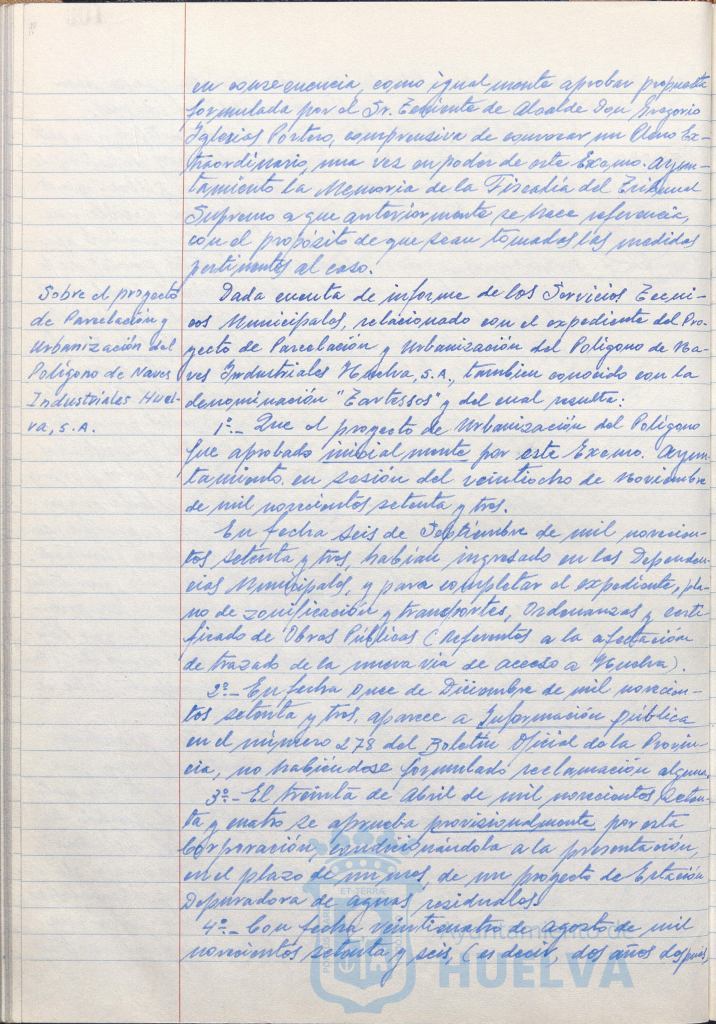 en consecuencia, como igualmente aprobar propuesta
formulada por el Sr. Teniente de Alcalde Don Gregorio
Iglesias Portero, comprensiva de convocar un Pleno Ex-
traordinario, una vez en poder de este Excmo. Ayun-
tamiento la Memoria de la Fiscalía del Tribunal
Supremo a que anteriormente se hace referencia,
con el propósito de que sean tomadas las medidas
pertinentes al caso.
Sobre el proyecto
de Parcelación y
Urbanización del
Polígono de Naves
Industriales Huel-
va, S.A.
Dada cuenta de informe de los Servicios Técni-
cos Municipales, relacionado con el expediente del Pro-
yecto de Parcelación y Urbanización del Polígono de Na-
ves Industriales Huelva, S.A., tambien conocido con la
denominación "Tartessos" y del cual resulta:
1º.- Que el proyecto de Urbanización del Polígono
fue aprobado inicialmente por este Excmo. Ayun-
tamiento. en sesión del veintiocho de Noviembre
de mil novecientos setenta y tres.
En fecha seis de Septiembre de mil novecien-
tos setenta y tres, habían ingresado en las Dependen-
cias Municipales, y para completar el expediente, pla-
no de zonificación y transportes, Ordenanzas y certi-
ficado de Obras Públicas (Referentes a la afectación
de trazado de la nueva via de acceso a Huelva).
2º.- En fecha once de Diciembre de mil novecien-
tos setenta y tres, aparece a Información pública
en el número 278 del Boletín Oficial de la Provin-
cia, no habiéndose formulado reclamación alguna.
3º.- El treinta de Abril de mil novecientos seten-
ta y cuatro se aprueba provisionalmente por esta
Corporación, condicionándola a la presentación,
en el plazo de un mes, de un proyecto de Estación
Depuradora de aguas residuales.
4º.- Con fecha veinticuatro de Agosto de mil
novecientos setenta y seis, (es decir, dos años después,
Ayuntamiento de
HUELVA